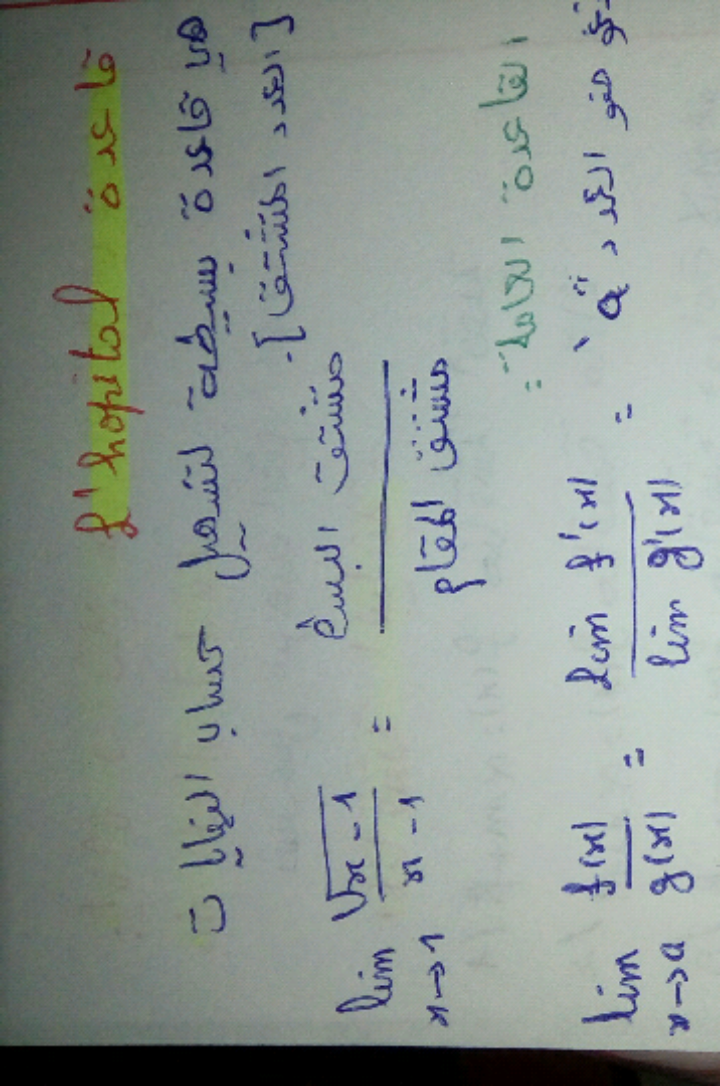 قاعدة L'hopital
هي قاعدة بسيطة لتسهيل حساب النهايات
[العدد المشتق].
lim x→1 √x-1 / x-1 = مشتق البسط / مشتق المقام
القاعدة العامة:
lim x→a f(x) / g(x) = lim f'(x) / lim g'(x) = نحو العدد "a"